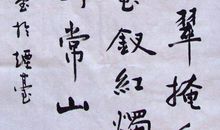 翠掩
釵紅燭
常山
於煙臺